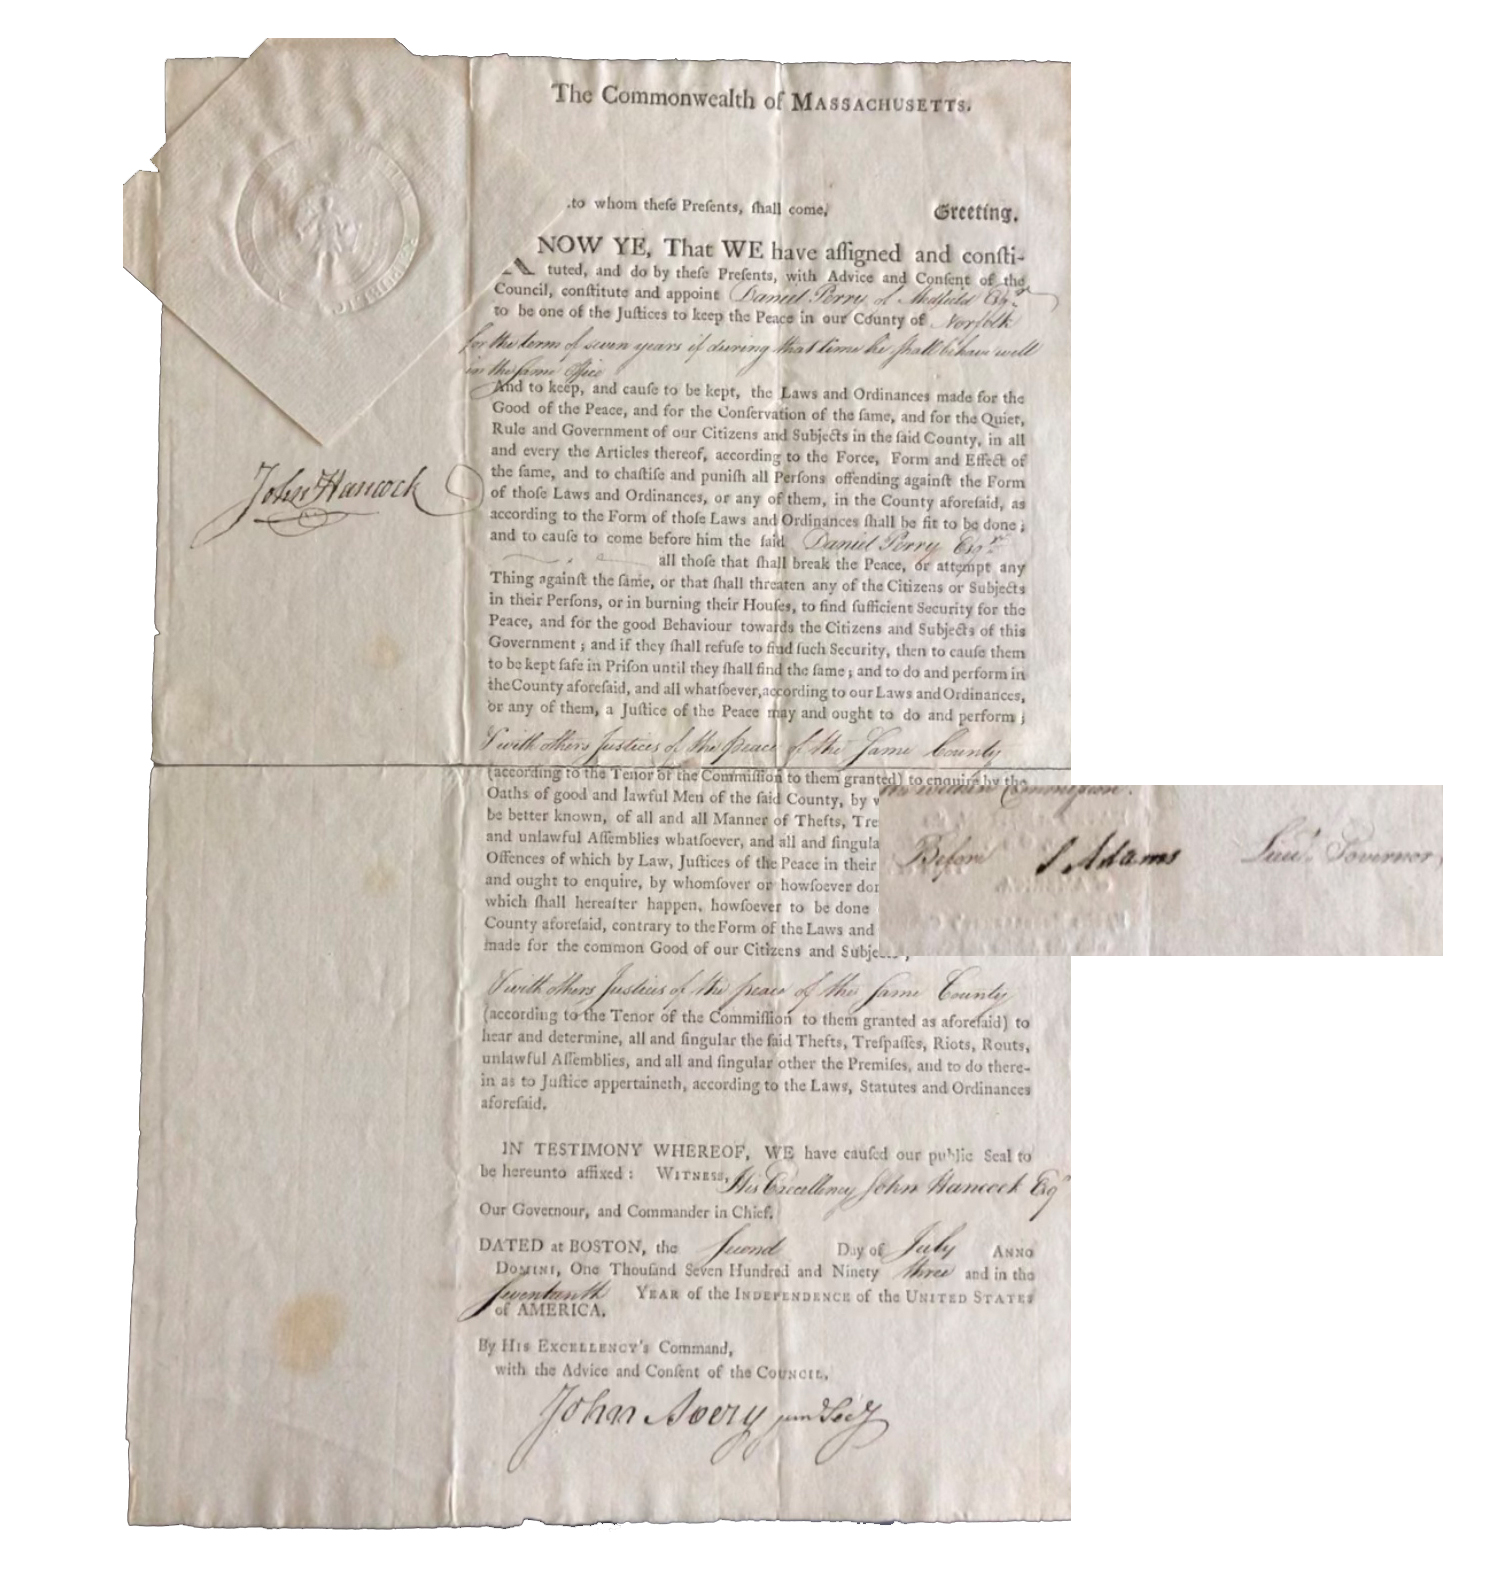 The Commonwealth of MASSACHUSETTS.
to whom theſe Preſents, ſhall come, Greeting.
NOW YE, That WE have aſſigned and conſti-
tuted, and do by theſe Preſents, with Advice and Conſent of the
Council, conſtitute and appoint Daniel Perry of Medfield Esqr
to be one of the Juſtices to keep the Peace in our County of Norfolk
for the term of seven years if during that time he ſhall behave well
in the ſame Office
And to keep, and cauſe to be kept, the Laws and Ordinances made for the
Good of the Peace, and for the Conſervation of the ſame, and for the Quiet,
Rule and Government of our Citizens and Subjects in the ſaid County, in all
and every the Articles thereof, according to the Force, Form and Effect of
the ſame, and to chaſtiſe and puniſh all Perſons offending againſt the Form
of thoſe Laws and Ordinances, or any of them, in the County aforeſaid, as
according to the Form of thoſe Laws and Ordinances ſhall be fit to be done;
John Hancock
and to cauſe to come before him the ſaid Daniel Perry Esqr
all thoſe that ſhall break the Peace, or attempt any
Thing againſt the ſame, or that ſhall threaten any of the Citizens or Subjects
in their Perſons, or in burning their Houſes, to find ſufficient Security for the
Peace, and for the good Behaviour towards the Citizens and Subjects of this
Government; and if they ſhall refuſe to find ſuch Security, then to cauſe them
to be kept ſafe in Priſon until they ſhall find the ſame; and to do and perform in
the County aforeſaid, and all whatſoever, according to our Laws and Ordinances,
or any of them, a Juſtice of the Peace may and ought to do and perform;
& with others Juſtices of the peace of the ſame County
(according to the Tenor of the Commiſſion to them granted) to enquire by the
Oaths of good and lawful Men of the ſaid County, by
be better known, of all and all Manner of Thefts, Tre
and unlawful Aſſemblies whatſoever, and all and ſingula
Offences of which by Law, Juſtices of the Peace in their
and ought to enquire, by whomſover or howſoever don
which ſhall hereafter happen, howſoever to be done
County aforeſaid, contrary to the Form of the Laws and
made for the common Good of our Citizens and Subjects;
the within Commiſsion.
Before S Adams Lieut. Governor
& with others Juſtices of the peace of the ſame County
(according to the Tenor of the Commiſſion to them granted as aforeſaid) to
hear and determine, all and ſingular the ſaid Thefts, Treſpaſſes, Riots, Routs,
unlawful Aſſemblies, and all and ſingular other the Premiſes, and to do there-
in as to Juſtice appertaineth, according to the Laws, Statutes and Ordinances
aforeſaid.
IN TESTIMONY WHEREOF, WE have cauſed our public Seal to
be hereunto affixed: WITNESS, His Excellency John Hancock Esqr
Our Governour, and Commander in Chief,
DATED at BOSTON, the ſecond Day of July ANNO
DOMINI, One Thouſand Seven Hundred and Ninety three and in the
ſeventeenth YEAR of the INDEPENDENCE of the UNITED STATES
of AMERICA.
By HIS EXCELLENCY'S Command,
with the Advice and Conſent of the COUNCIL,
John Avery junr Secy